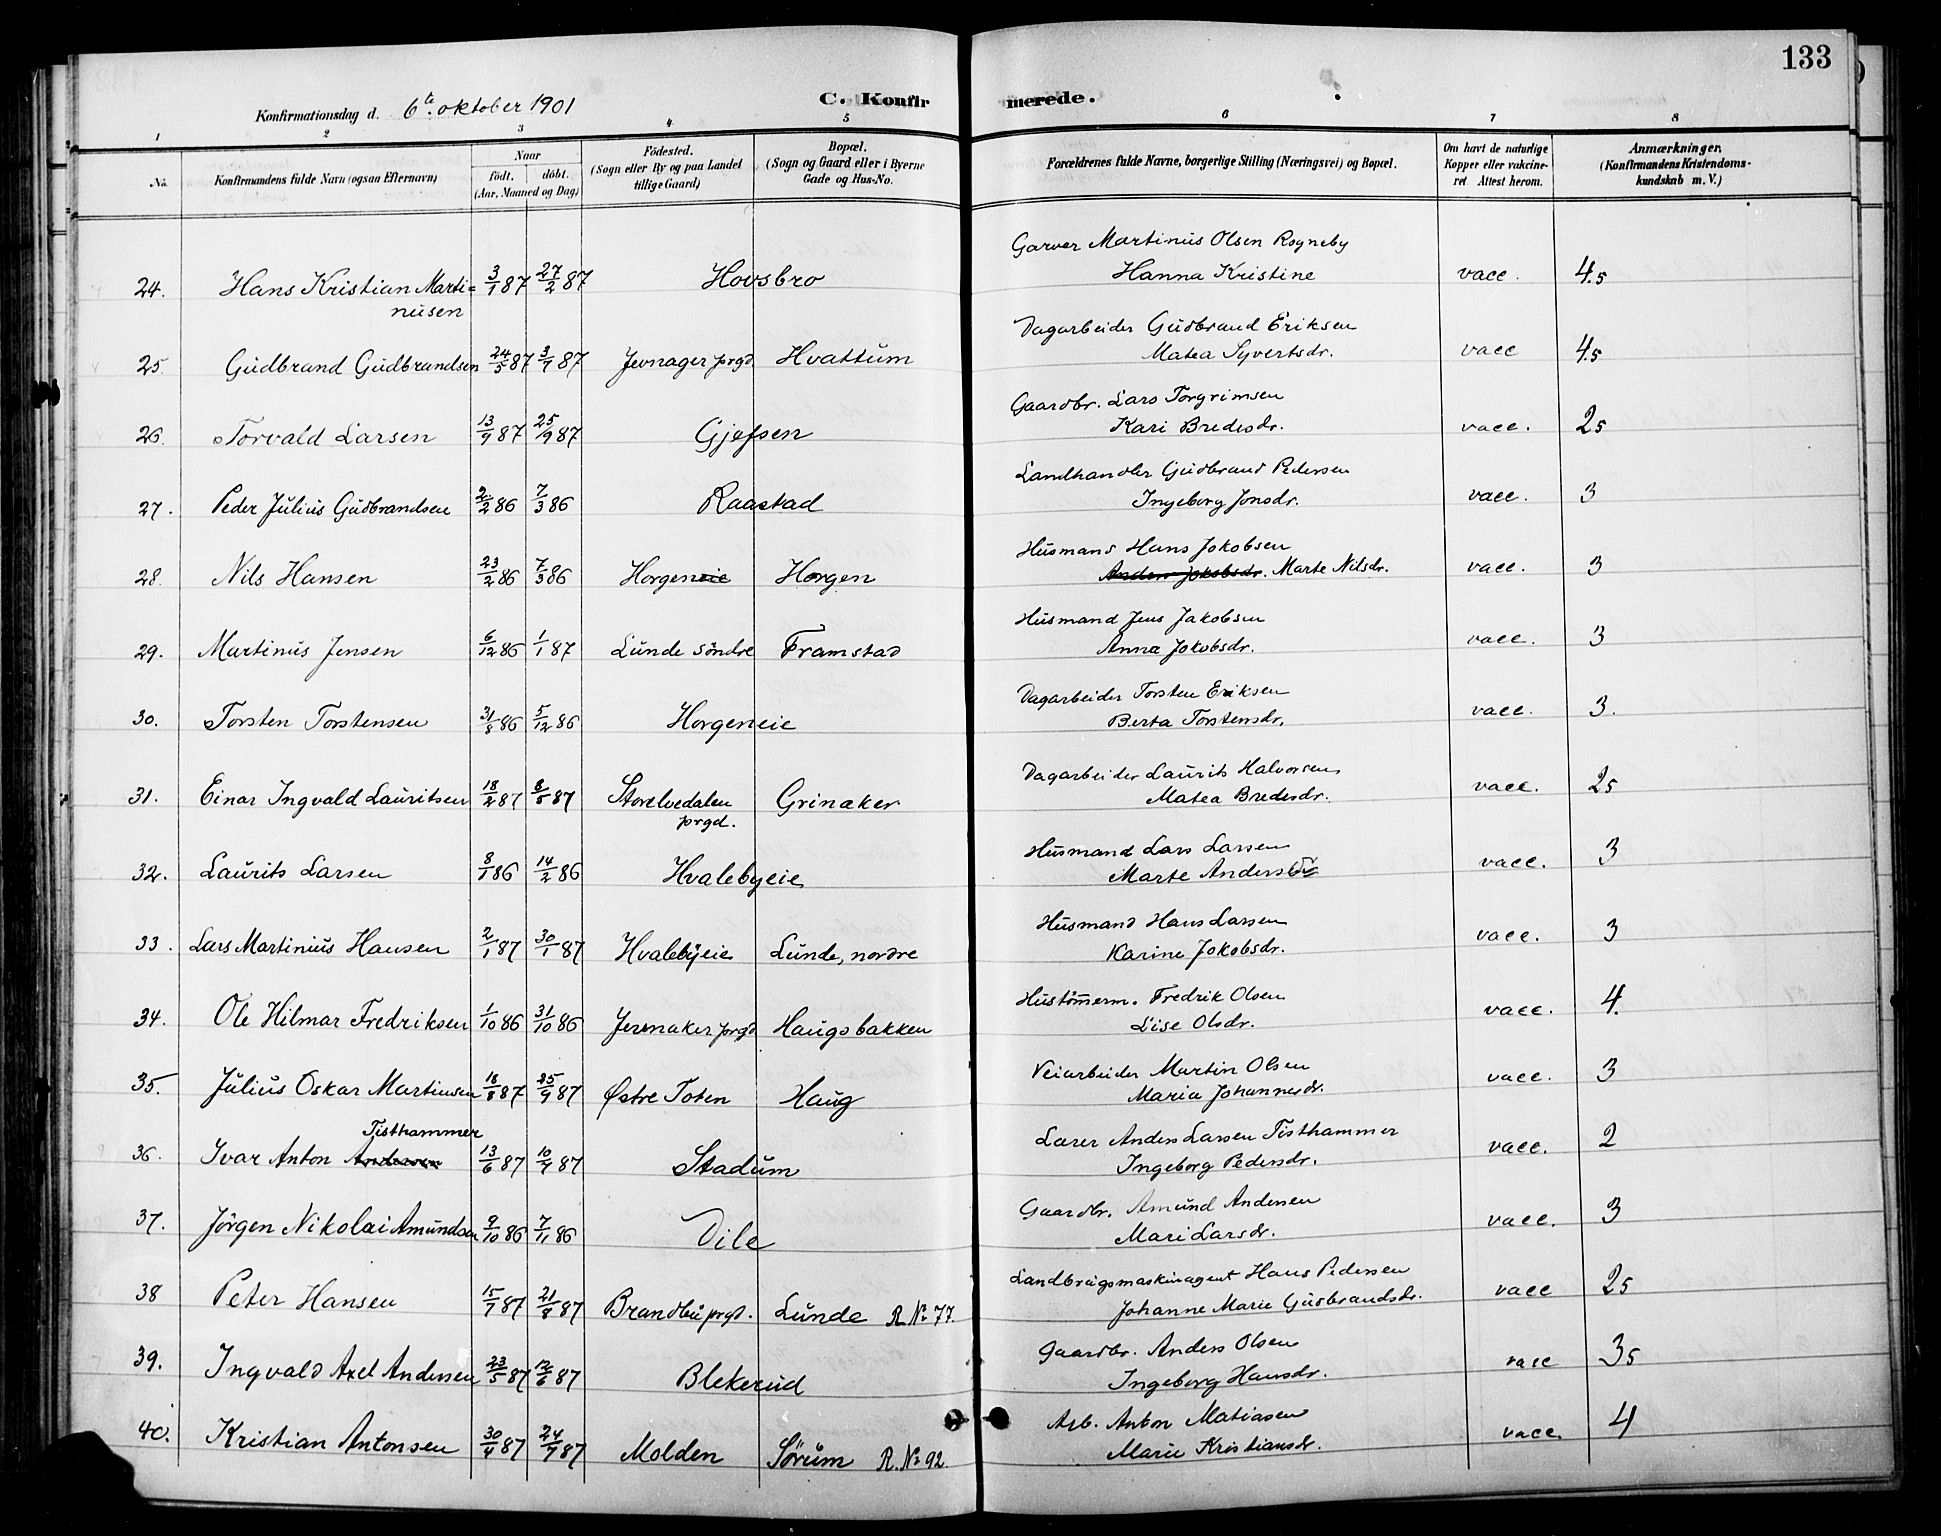 133
Konfirmationsdag d. 6te oktober 1901
C. Konfirmerede.
1 2 3 4 5 6 7 8
No. Konfirmandens fulde Navn (ogsaa Efternavn) Naar født. døbt. (Aar, Maaned og Dag) Fødested. (Sogn eller By og paa Landet tillige Gaard) Bopæl. (Sogn og Gaard eller i Byerne Gade og Hus-No. Forældrenes fulde Navne, borgerlige Stilling (Næringsvei) og Bopæl. Om havt de naturlige Kopper eller vakcineret Attest herom. Anmærkninger. (Konfirmandens Kristendomskundskab m. V.)
Garver Martinus Olsen Rogneby
24. Hans Kristian Marti= 3/1 87 27/2 87 Hovsbro Hanna Kristine vacc. 4.5
nusen
Dagarbeider Gudbrand Eriksen
25. Gudbrand Gudbrandsen 24/5 87 3/7 87 Jevnager prgd. Hvattum Matea Syvertsdr. vacc 4.5
Gaardbr. Lars Torgrimsen
26. Torvald Larsen 13/9 87 25/9 87 Gjefsen Kari Bredesdr. vacc. 25
Landhandler Gudbrand Pedersen
27. Peder Julius Gudbrandsen 2/2 86 7/3 86 Raastad Ingeborg Jonsdr. vacc. 3
Husmand Hans Jokobsen
28. Nils Hansen 23/2 86 7/3 86 Horgeneie Horgen Marte Nilsdr. vacc. 3
Husmand Jens Jakobsen
29. Martinus Jensen 6/12 86 1/1 87 Lunde søndre Framstad Anna Jokobsdr. vacc. 3
Dagarbeider Torsten Eriksen
30. Torsten Torstensen 31/8 86 5/12 86 Horgeneie Berta Torstensdr. vacc. 3.
Dagarbeider Laurits Halvorsen
31. Einar Ingvald Lauritsen 18/2 87 8/5 87 Storelvedalen Grinaker Matea Bredesdr. vacc. 25
prgd.
Husmand Lars Larsen
32. Laurits Larsen 8/1 86 14/2 86 Hvalebyeie Marte Andersdr vacc. 3
Husmand Hans Larsen
33. Lars Martinius Hansen 2/1 87 30/1 87 Hvalebyeie Lunde, nordre Karine Jokobsdr. vacc. 3
Hustømerm. Fredrik Olsen
34. Ole Hilmar Fredriksen 1/10 86 31/10 86 Jevnaker prgd Haugsbakken Lise Olsdr. vacc. 4.
Veiarbeider Martin Olsen
35. Julius Oskar Martinsen 18/8 87 25/9 87 Østre Toten Haug Maria Johannesdr. vacc. 3
Tisthammer Lærer Anders Larsen Tisthammer
36. Ivar Anton Andersen 13/6 87 10/7 87 Stadum Ingeborg Pedersdr. vacc. 2
Gaardbr. Amund Andersen
37. Jørgen Nikolai Amundsen 9/10 86 7/11 86 Dile Mari Larsdr. vacc. 3
Landbrugsmaskinagent Hans Pedersen
38 Peter Hansen 15/7 87 21/8 87 Brandbu prgd. Lunde R No 77. Johanne Marie Gudbrandsdr. vacc 25
Gaardbr. Anders Olsen
39. Ingvald Axel Andersen 23/5 87 12/6 87 Blekerud Ingeborg Hansdr. vacc 35
Arb. Anton Matiasen
40. Kristian Antonsen 30/4 87 24/7 87 Molden Sørum R. No 92. Marie Kristiansdr. vacc. 4